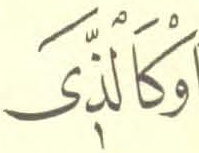 اَوْكَالَّذ۪ى